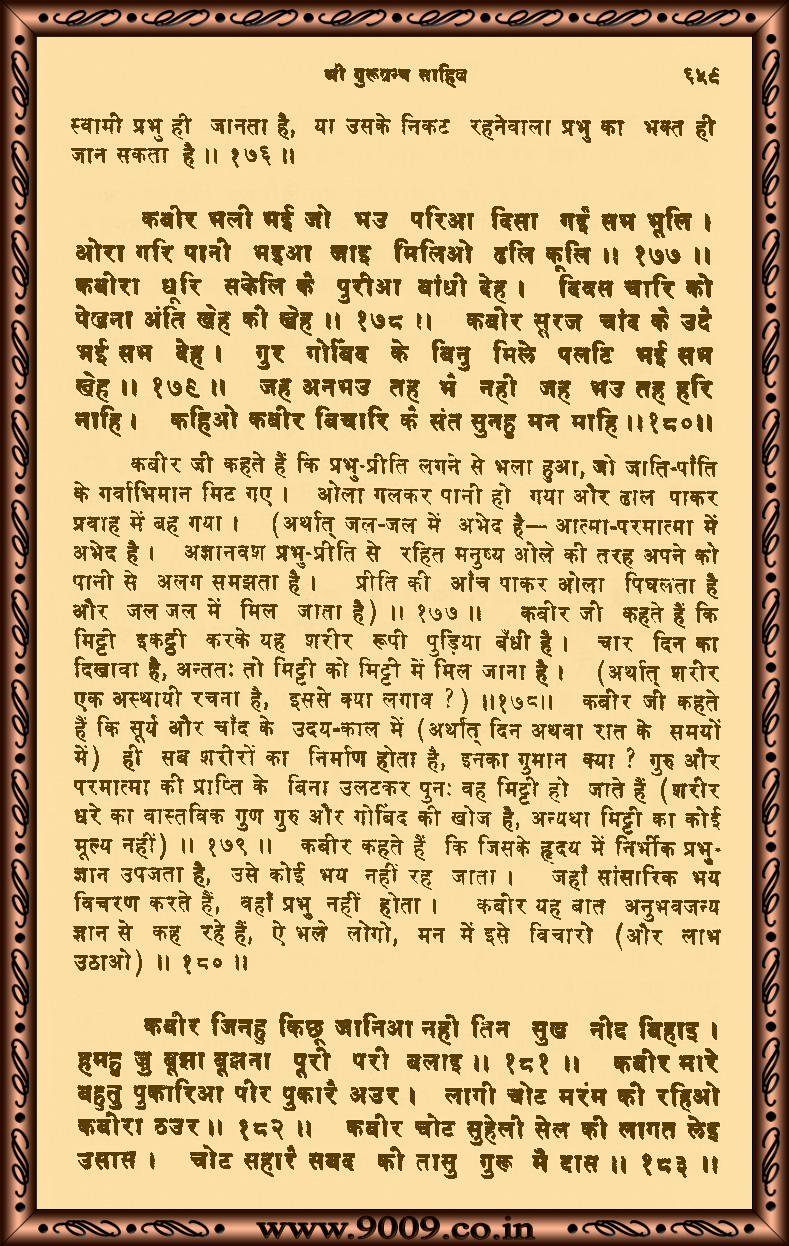 श्री गुरूग्रन्थ साहिब ६५९
स्वामी प्रभु ही जानता है, या उसके निकट रहनेवाला प्रभु का भक्त ही
जान सकता है ॥ १७६ ॥
कबीर भली भई जो भउ परिआ दिसा गईं सभ भूलि ।
ओरा गरि पानी भइआ जाइ मिलिओ ढलि कूलि ॥ १७७ ॥
कबीरा धूरि सकेलि कै पुरीआ बांधी देह । दिवस चारि को
पेखना अंति खेह की खेह ॥ १७८ ॥ कबीर सूरज चांद कै उदै
भई सभ देह । गुर गोबिंद के बिनु मिले पलटि भई सभ
खेह ॥ १७९ ॥ जह अनभउ तह भै नही जह भउ तह हरि
नाहि । कहिओ कबीर बिचारि कै संत सुनहु मन माहि ॥१८०॥
कबीर जी कहते हैं कि प्रभु-प्रीति लगने से भला हुआ, जो जाति-पाँति
के गर्वाभिमान मिट गए । ओला गलकर पानी हो गया और ढाल पाकर
प्रवाह में बह गया । (अर्थात् जल-जल में अभेद है— आत्मा-परमात्मा में
अभेद है । अज्ञानवश प्रभु-प्रीति से रहित मनुष्य ओले की तरह अपने को
पानी से अलग समझता है । प्रीति की आँच पाकर ओला पिघलता है
और जल जल में मिल जाता है) ॥ १७७ ॥ कबीर जी कहते हैं कि
मिट्टी इकट्ठी करके यह शरीर रूपी पुड़िया बँधी है । चार दिन का
दिखावा है, अन्ततः तो मिट्टी को मिट्टी में मिल जाना है । (अर्थात् शरीर
एक अस्थायी रचना है, इससे क्या लगाव ?) ॥१७८॥ कबीर जी कहते
हैं कि सूर्य और चाँद के उदय-काल में (अर्थात् दिन अथवा रात के समयों
में) ही सब शरीरों का निर्माण होता है, इनका गुमान क्या ? गुरु और
परमात्मा की प्राप्ति के बिना उलटकर पुनः वह मिट्टी हो जाते हैं (शरीर
धरे का वास्तविक गुण गुरु और गोबिंद की खोज है, अन्यथा मिट्टी का कोई
मूल्य नहीं) ॥ १७९ ॥ कबीर कहते हैं कि जिसके हृदय में निर्भीक प्रभु-
ज्ञान उपजता है, उसे कोई भय नहीं रह जाता । जहाँ सांसारिक भय
विचरण करते हैं, वहाँ प्रभु नहीं होता । कबीर यह बात अनुभवजन्य
ज्ञान से कह रहे हैं, ऐ भले लोगो, मन में इसे विचारो (और लाभ
उठाओ) ॥ १८० ॥
कबीर जिनहु किछू जानिआ नही तिन सुख नीद बिहाइ ।
हमहु जु बूझा बूझना पूरी परी बलाइ ॥ १८१ ॥ कबीर मारे
बहुतु पुकारिआ पीर पुकारै अउर । लागी चोट मरंम की रहिओ
कबीरा ठउर ॥ १८२ ॥ कबीर चोट सुहेली सेल की लागत लेइ
उसास । चोट सहारै सबद की तासु गुरू मै दास ॥ १८३ ॥
www.9009.co.in